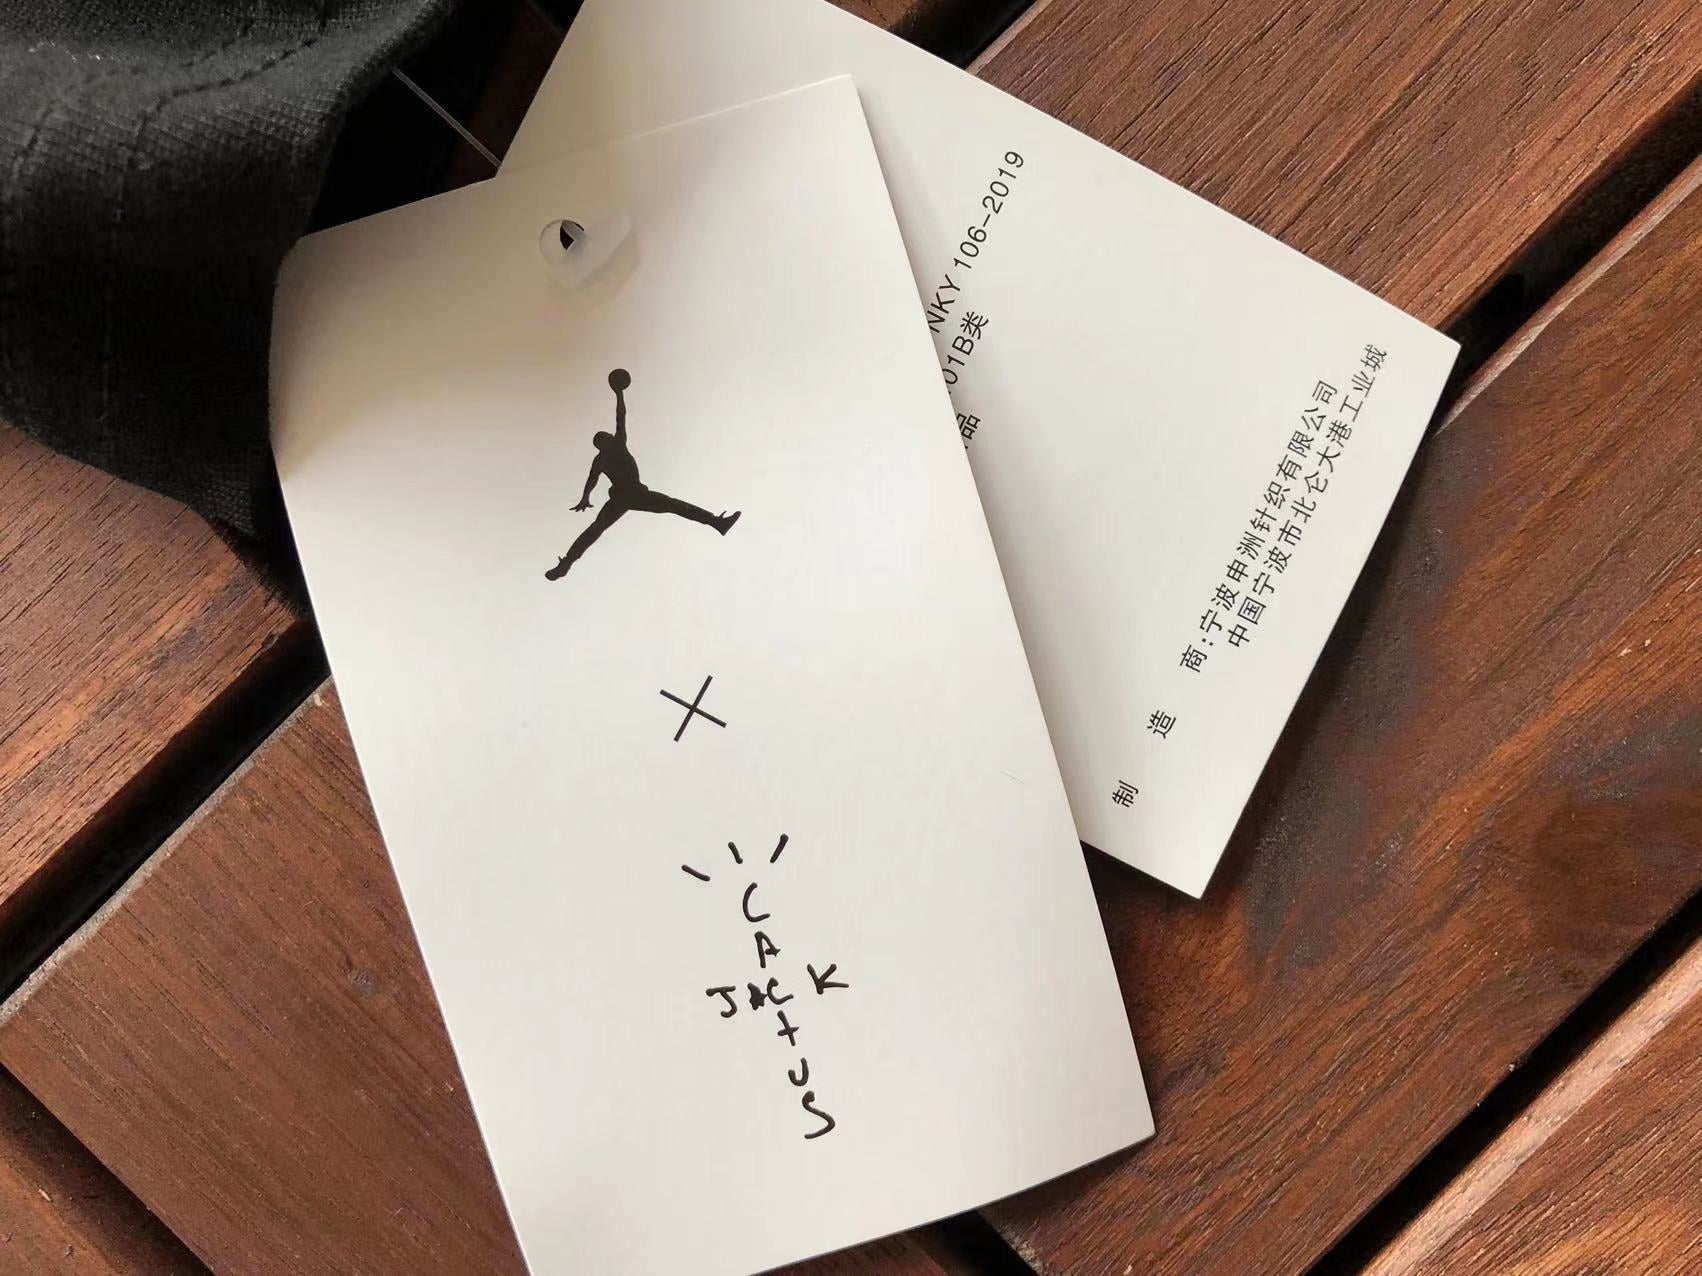 ×
CACTUS
JACK
NKY 106-2019
01B类
品
制 造 商:宁波申洲针织有限公司
中国宁波市北仑大港工业城